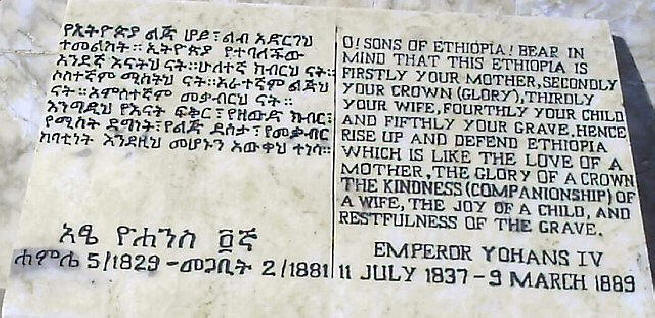 የኢትዮጵያ ልጅ ሆይ፣ልብ አድርገህ
ተመልከት።ኢትዮጵያ የተባለችው
አንደኛ እናትህ ናት።ሁለተኛ ክብርህ ናት።
ሶስተኛም ሚስትህ ናት።አራተኛም ልጅህ
ናት።አምስተኛም መቃብርህ ናት።
እንግዲህ የእናት ፍቅር፣የዘውድ ክብር፣
የሚስት ደግነት፣የልጅ ደስታ፣የመቃብር
ከባቲነት እንደዚህ መሆኑን አውቀህ ተነሳ።
አፄ ዮሐንስ ፬ኛ
ሐምሌ 5/1829 - መጋቢት 2/1881
O! SONS OF ETHIOPIA! BEAR IN
MIND THAT THIS ETHIOPIA IS
FIRSTLY YOUR MOTHER, SECONDLY
YOUR CROWN (GLORY), THIRDLY
YOUR WIFE, FOURTHLY YOUR CHILD
AND FIFTHLY YOUR GRAVE. HENCE
RISE UP AND DEFEND ETHIOPIA
WHICH IS LIKE THE LOVE OF A
MOTHER, THE GLORY OF A CROWN
THE KINDNESS (COMPANIONSHIP) OF
A WIFE, THE JOY OF A CHILD, AND
RESTFULNESS OF THE GRAVE.
EMPEROR YOHANS IV
11 JULY 1837 - 9 MARCH 1889